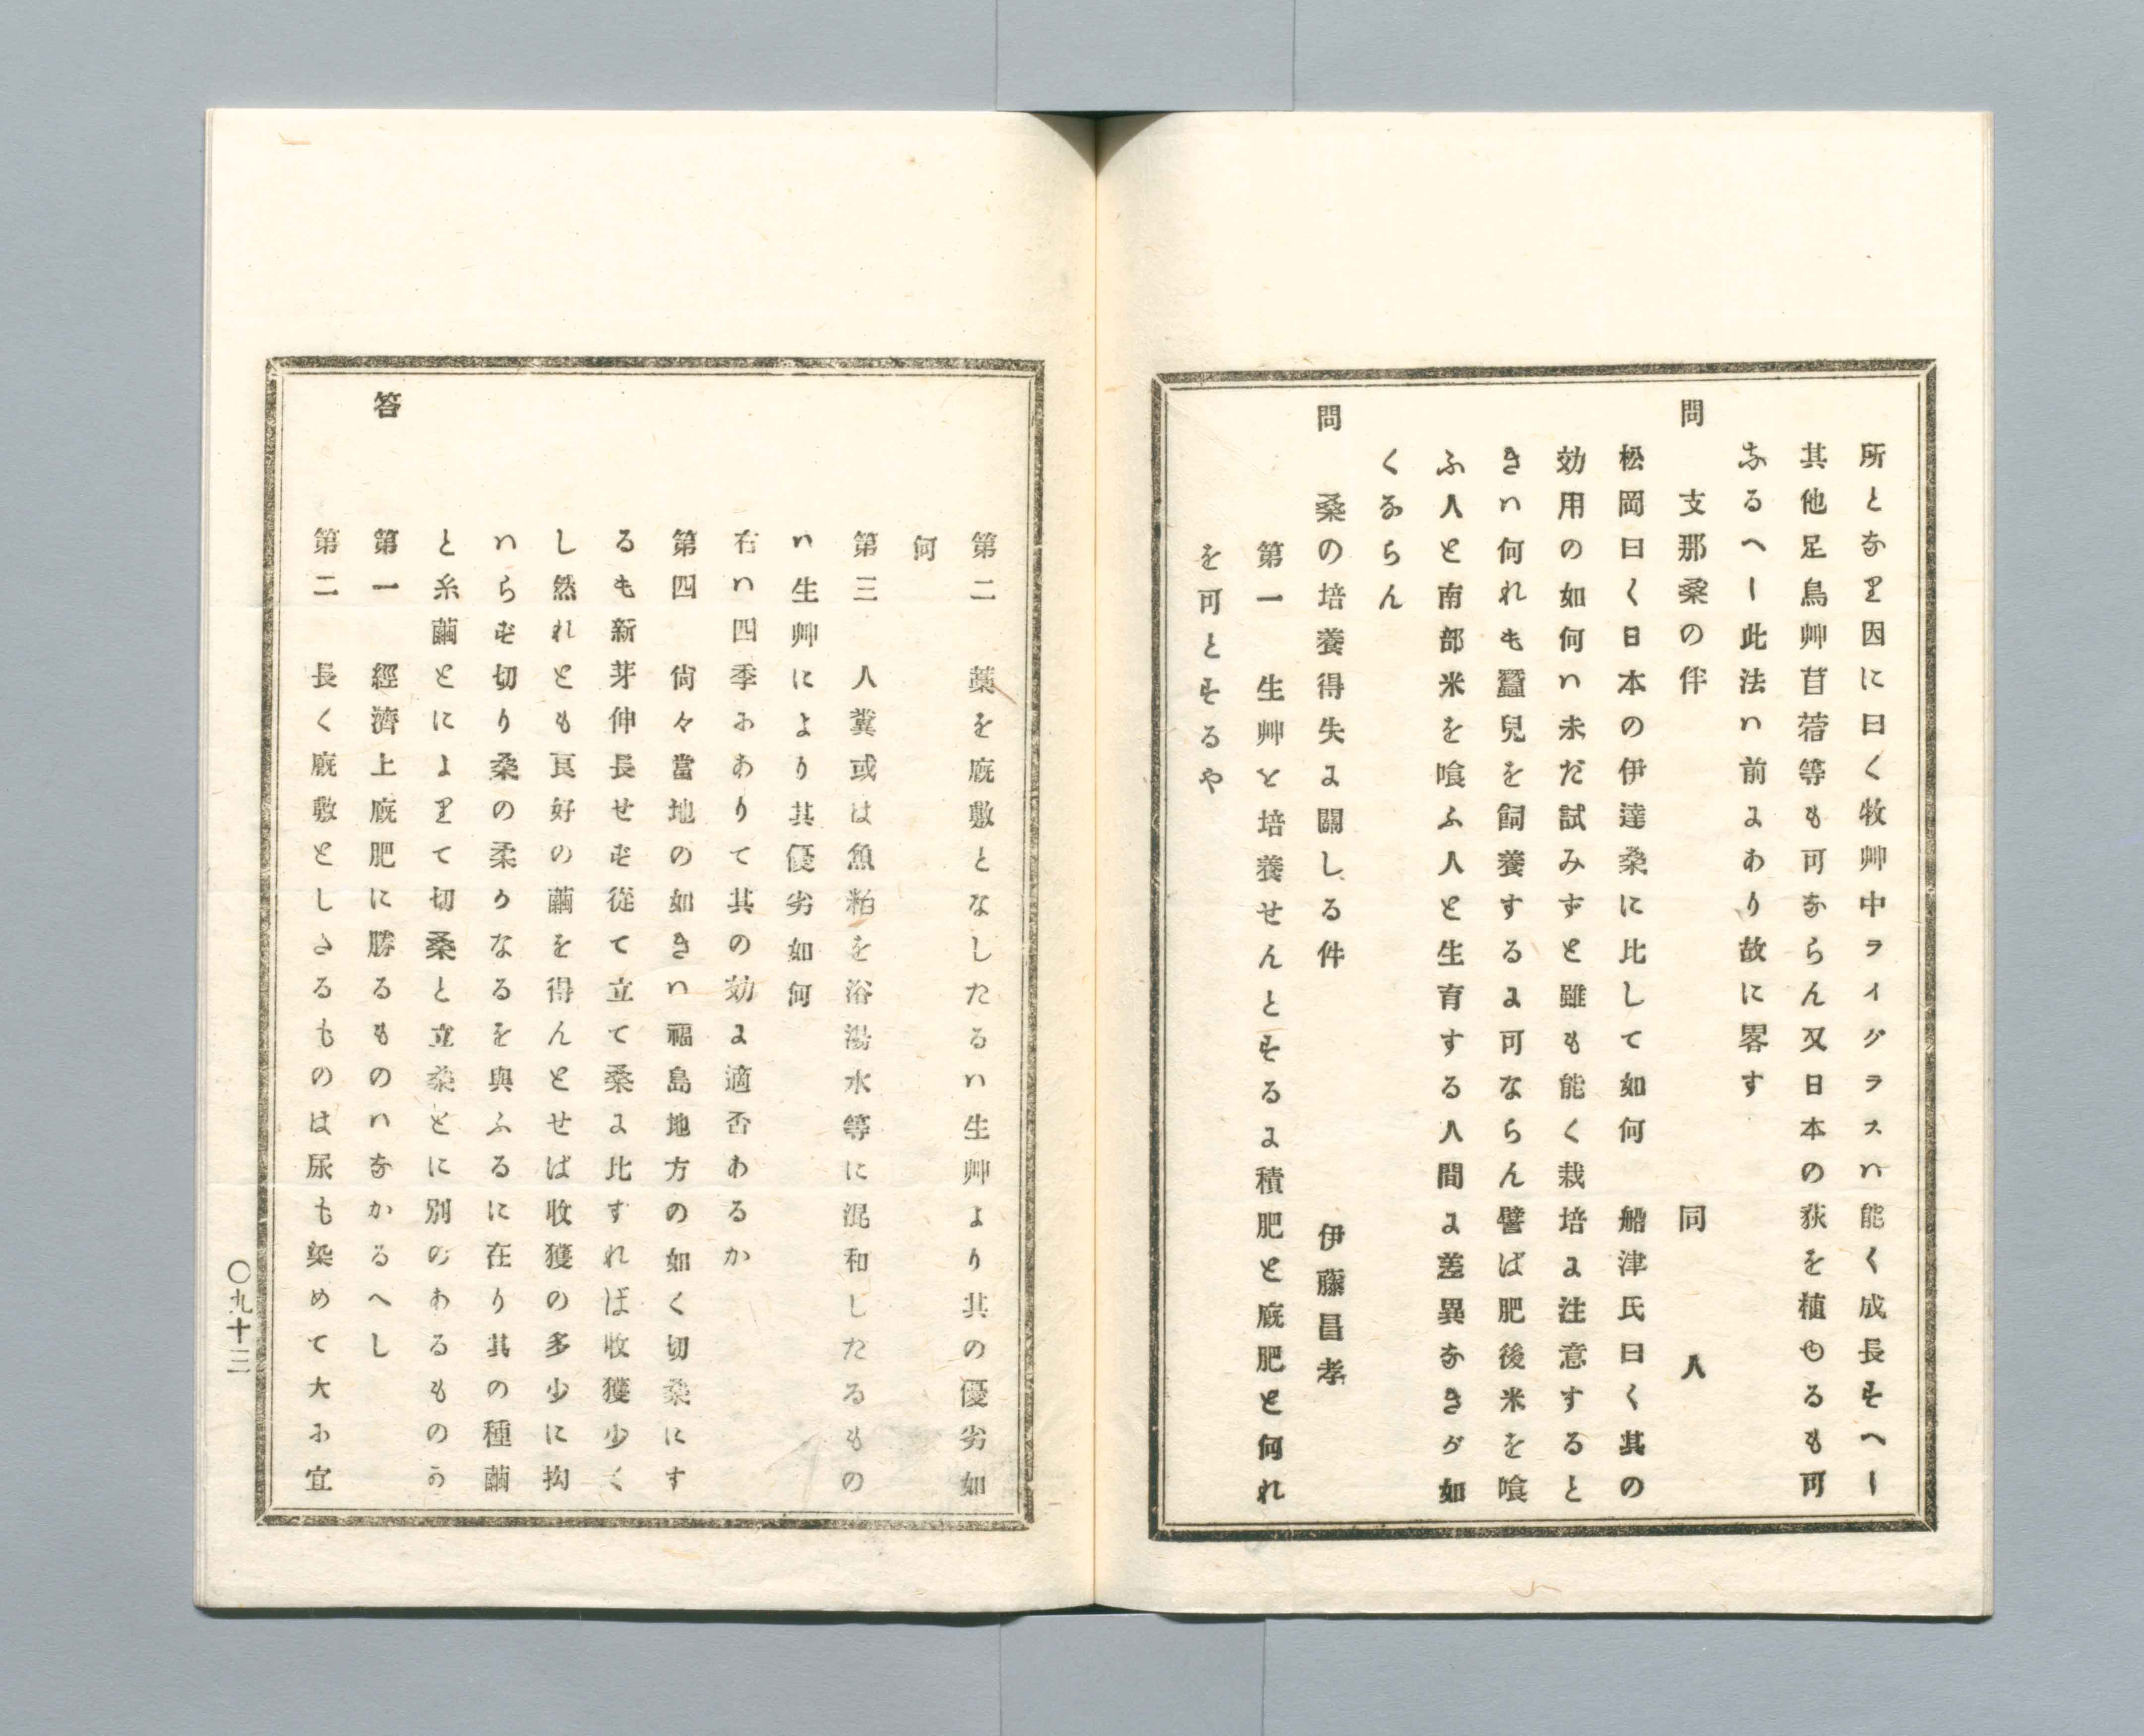 所となり因に曰く牧艸中ライグラスハ能く成長すへし
其他足鳥艸苜蓿等も可ならん又日本の荻を植ゆるも可
なるへし此法ハ前にあり故に畧す
問　支那桑の件　同人
松岡曰く日本の伊達桑に比して如何　船津氏曰く其の
効用の如何ハ未だ試みずと雖も能く栽培に注意すると
きハ何れも蠶兒を飼養するに可ならん譬ば肥後米を喰
ふ人と南部米を喰ふ人と生育する人間に差異なきが如
くならん
問　桑の培養得失に關しる件　伊藤昌孝
第一　生艸を培養せんとするに積肥と廐肥と何れ
を可とするや
第二　藁を廐敷となしたるハ生艸より其の優劣如
何
第三　人糞或は魚粕を浴湯水等に混和したるもの
ハ生艸により其優劣如何
右ハ四季にありて其の効に適否あるか
第四　尙々當地の如きハ福島地方の如く切桑にす
るも新芽伸長せず從て立て桑に比すれば收獲少く
し然れとも良好の繭を得んとせば收獲の多少に拘
ハらず切り桑の柔りなるを與ふるに在り其の種繭
と糸繭とによりて切桑と立桑とに別のあるものう
答　第一　經濟上廐肥に勝るものハなかるへし
第二　長く廐敷としさるものは尿も染めて大に宜
〇九十三